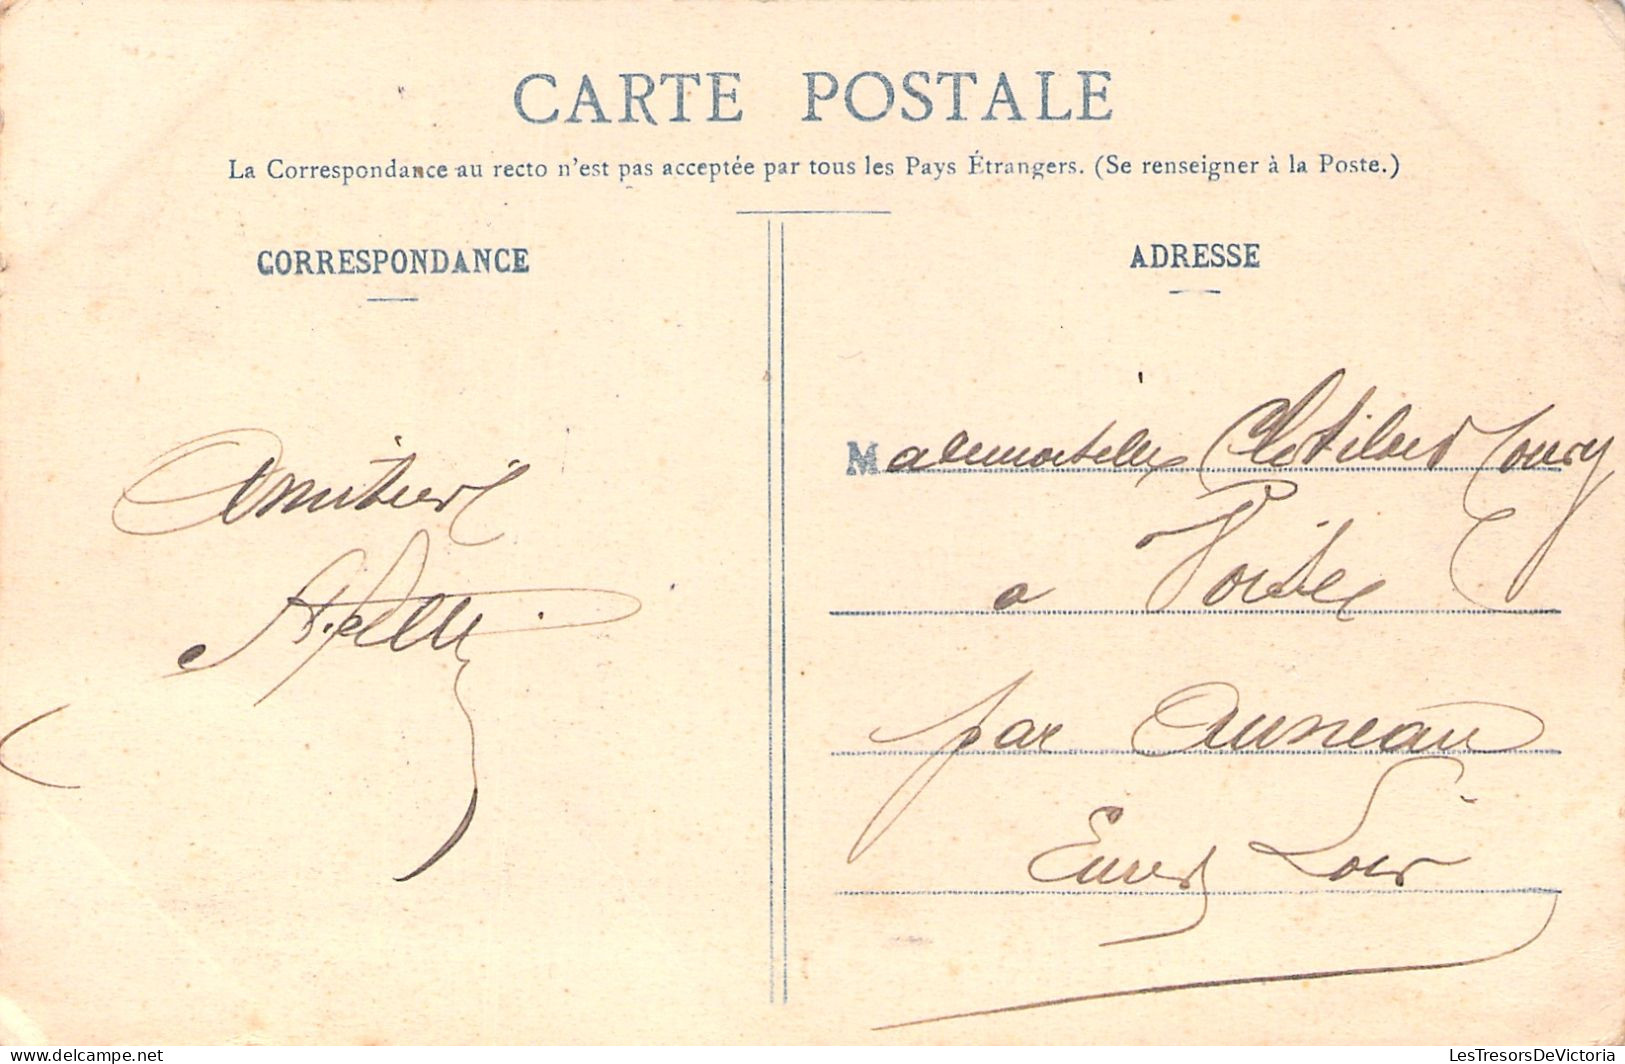 CARTE POSTALE
La Correspondance au recto n'est pas acceptée par tous les Pays Étrangers. (Se renseigner à la Poste.)
CORRESPONDANCE
Amitiés
ADRESSE
Mademoiselle Clotilde
a
par Auneau
Eure Loir
LesTresorsDeVictoria
www.delcampe.net